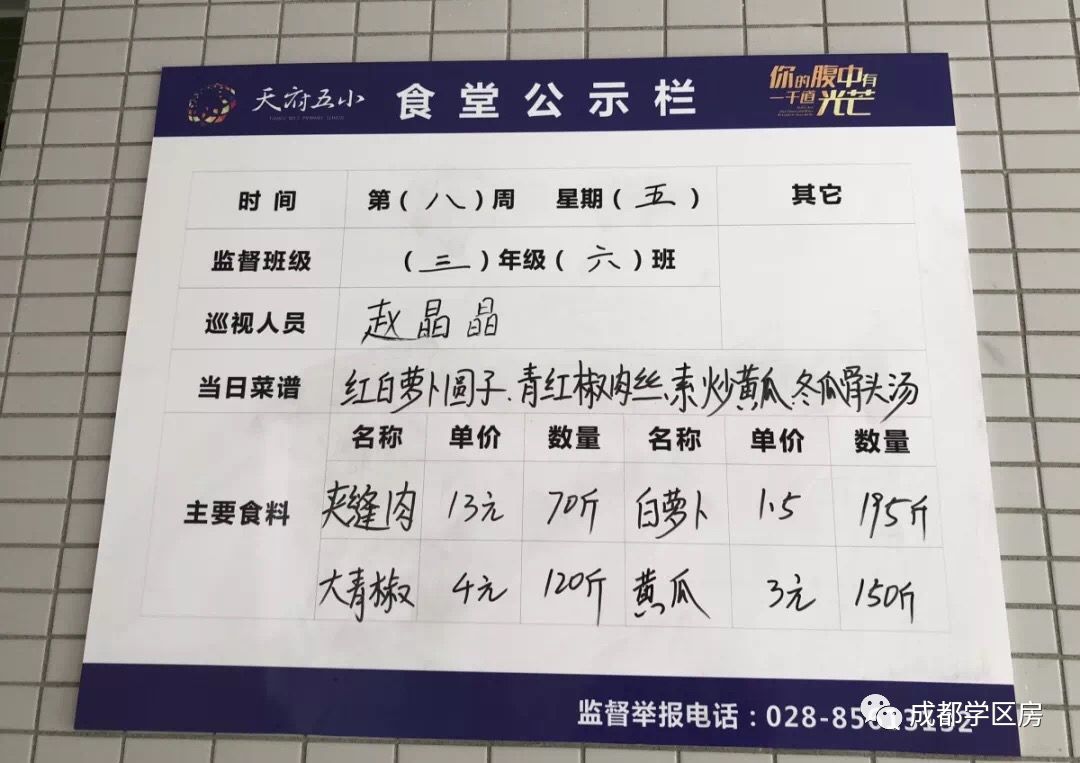 天府五小 食堂公示栏 你的腹中有一千道光芒
时间 第(八)周 星期(五) 其它
监督班级 (三)年级(六)班
巡视人员 赵晶晶
当日菜谱 红白萝卜圆子、青红椒肉丝、素炒黄瓜、冬瓜骨头汤
名称 单价 数量 名称 单价 数量
主要食料
夹缝肉 13元 70斤 白萝卜 1.5 195斤
大青椒 4元 120斤 黄瓜 3元 150斤
监督举报电话:028-85
成都学区房